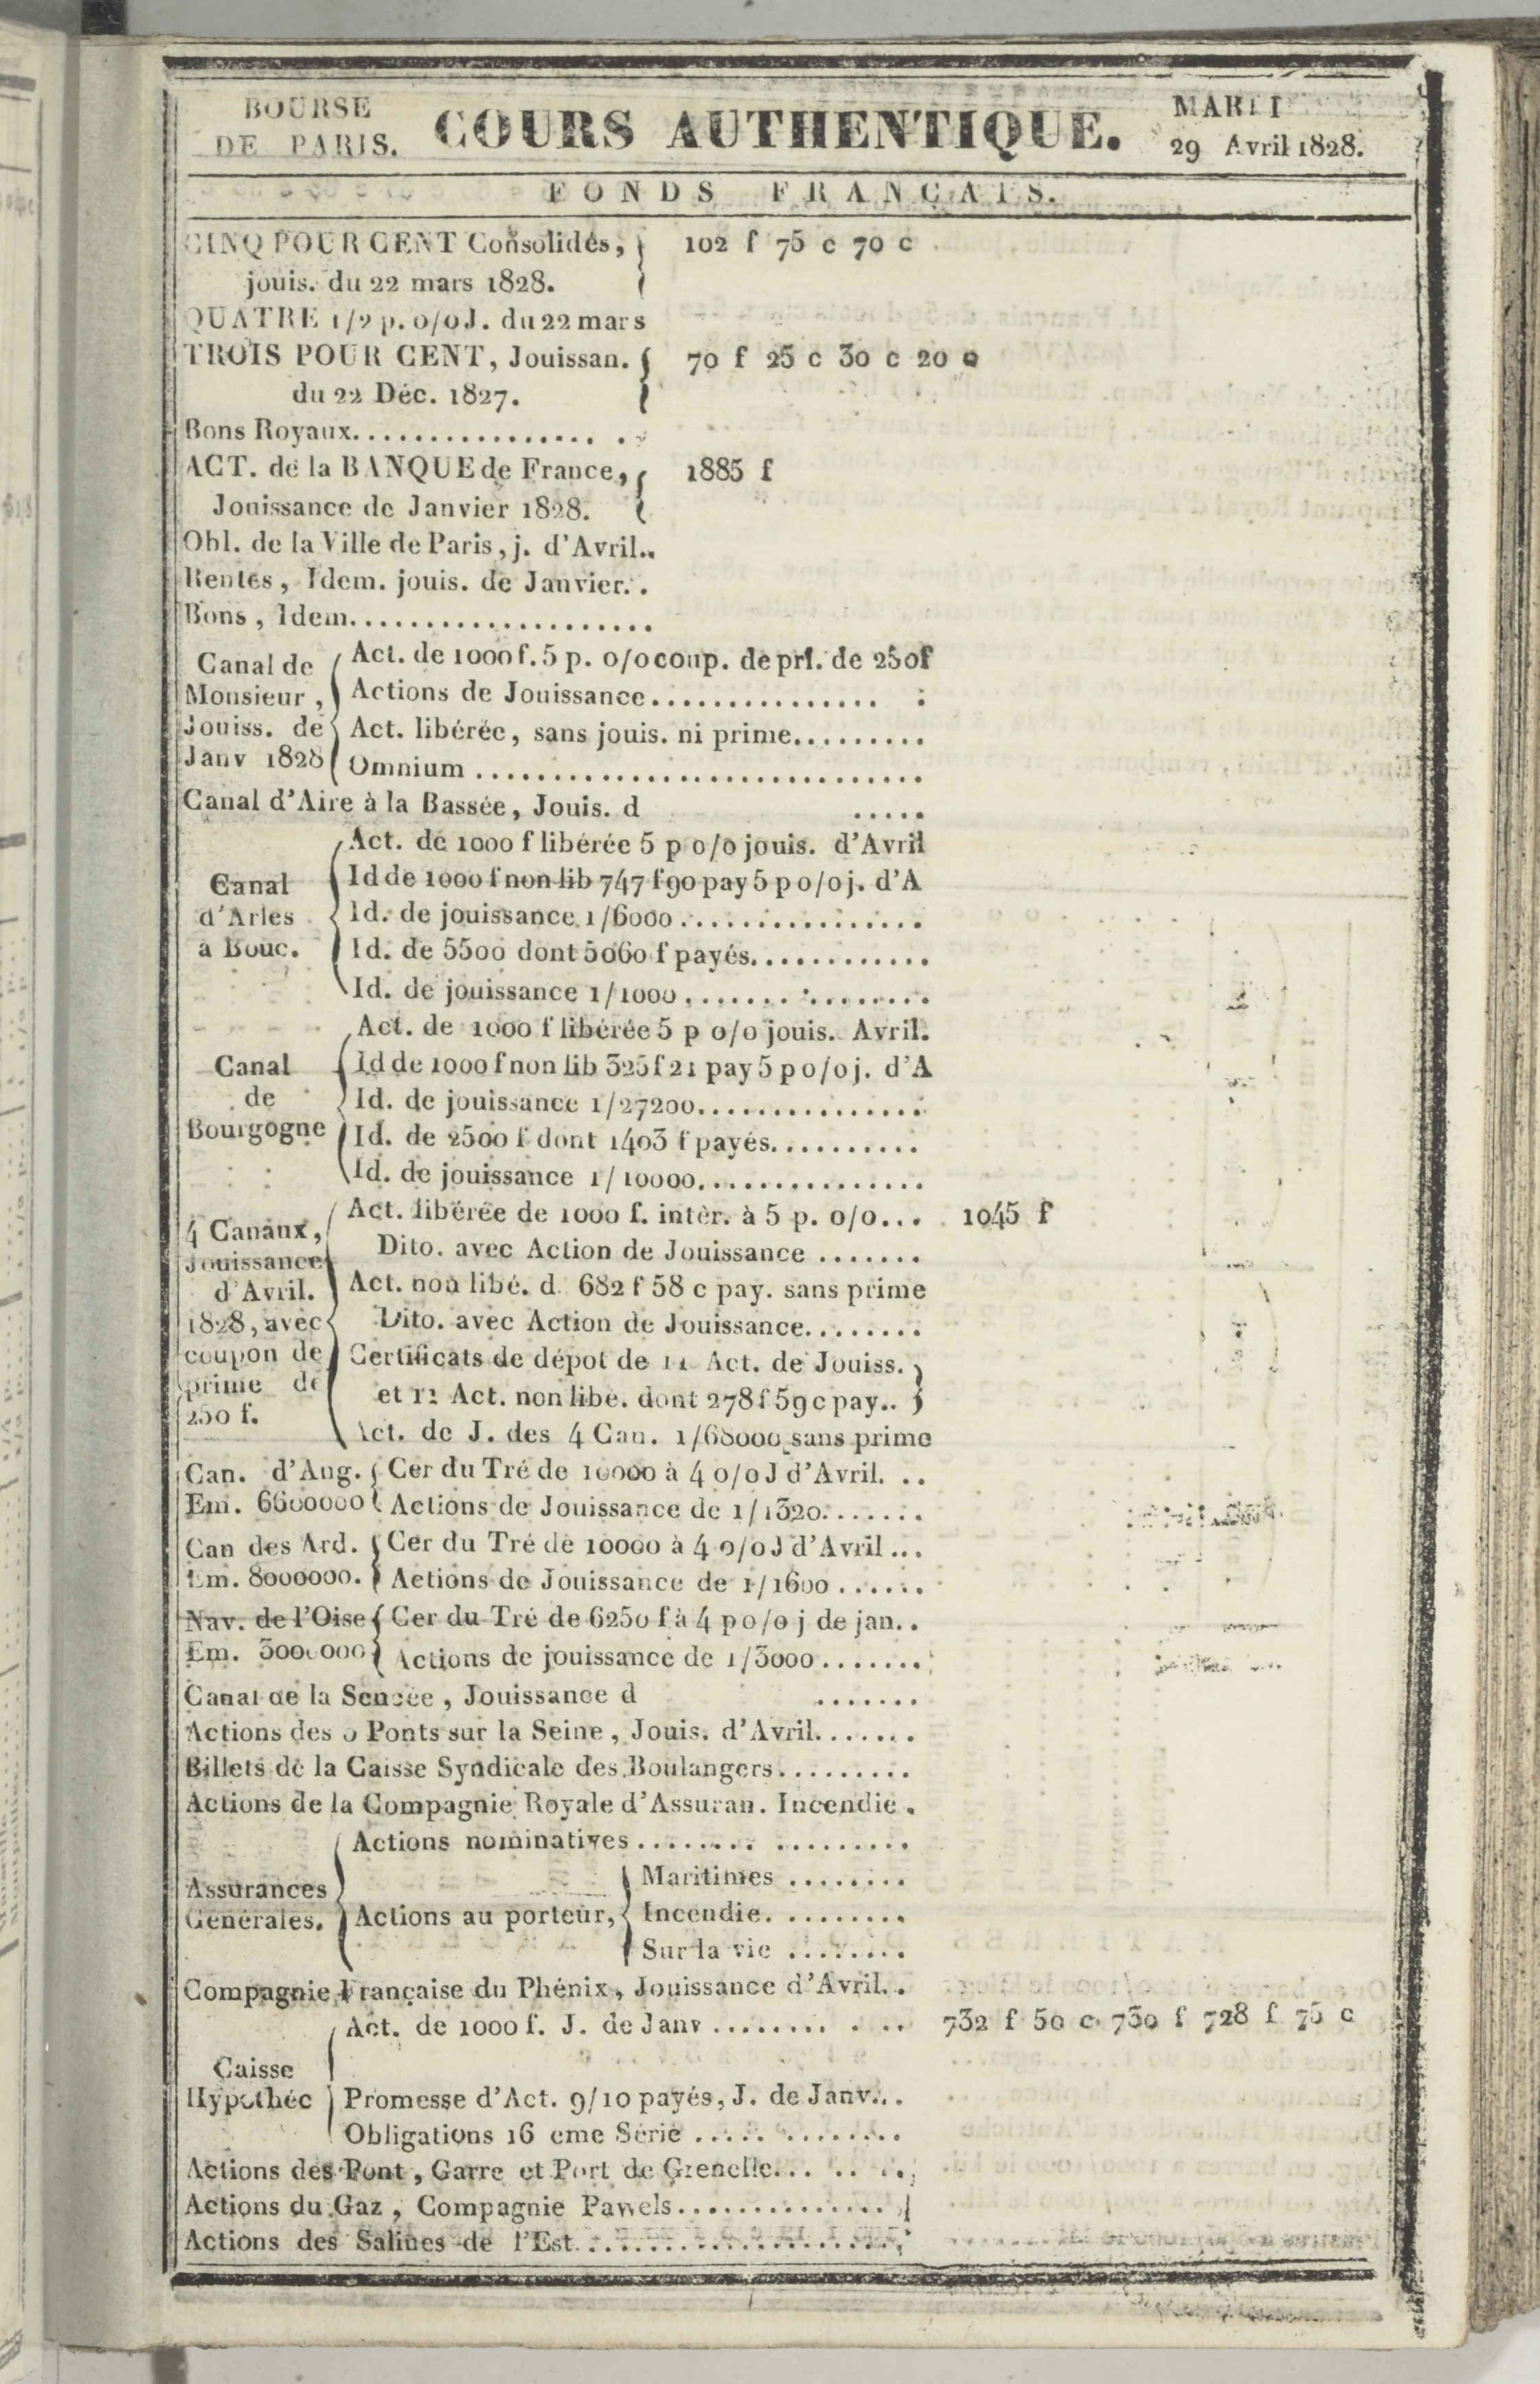 BOURSE
DE PARIS.
COURS AUTHENTIQUE.
MARDI
29 Avril 1828.
FONDS FRANÇAIS.
CINQ POUR CENT Consolidés, 102 f 75 c 70 c
jouis. du 22 mars 1828.
QUATRE 1/2 p. o/o J. du 22 mars
TROIS POUR CENT, Jouissan. 70 f 25 c 30 c 20 c
du 22 Déc. 1827.
Bons Royaux.................
ACT. de la BANQUE de France, 1885 f
Jouissance de Janvier 1828.
Obl. de la Ville de Paris, j. d'Avril..
Rentes, Idem. jouis. de Janvier..
Bons, Idem....................
Canal de Monsieur, Jouiss. de Janv 1828
Act. de 1000 f. 5 p. o/o coup. de pri. de 250f
Actions de Jouissance...............
Act. libérée, sans jouis. ni prime.........
Omnium .............................
Canal d'Aire à la Bassée, Jouis. d .....
Canal d'Arles a Bouc.
Act. de 1000 f libérée 5 p o/o jouis. d'Avril
Id de 1000 f non lib 747 f 90 pay 5 p o/o j. d'A
Id. de jouissance 1/6000................
Id. de 5500 dont 5060 f payés............
Id. de jouissance 1/1000................
Canal de Bourgogne
Act. de 1000 f libérée 5 p o/o jouis. Avril.
Id de 1000 f non lib 325 f 21 pay 5 p o/o j. d'A
Id. de jouissance 1/27200...............
Id. de 2500 f dont 1403 f payés..........
Id. de jouissance 1/10000...............
4 Canaux, Jouissance d'Avril. 1828, avec coupon de prime de 250 f.
Act. libérée de 1000 f. intér. à 5 p. o/o... 1045 f
Dito. avec Action de Jouissance .......
Act. non libé. d. 682 f 58 c pay. sans prime
Dito. avec Action de Jouissance........
Certificats de dépot de 11 Act. de Jouiss.
et 11 Act. non libe. dont 278 f 59 c pay..
Act. de J. des 4 Can. 1/68000 sans prime
Can. d'Ang. Cer du Tré de 10000 à 4 o/o J d'Avril. ..
Em. 6600000 Actions de Jouissance de 1/1320.......
Can des Ard. Cer du Tré de 10000 à 4 o/o J d'Avril ...
Em. 8000000. Actions de Jouissance de 1/1600......
Nav. de l'Oise Cer du Tré de 6250 f à 4 p o/o j de jan..
Em. 3000000 Actions de jouissance de 1/3000.......
Canal de la Sensée, Jouissance d .......
Actions des Ponts sur la Seine, Jouis. d'Avril.......
Billets de la Caisse Syndicale des Boulangers.........
Actions de la Compagnie Royale d'Assuran. Incendie.
Assurances Générales.
Actions nominatives .................
Actions au porteur,
Maritimes ........
Incendie. ........
Sur la vie ........
Compagnie Française du Phénix, Jouissance d'Avril..
Caisse Hypothéc
Act. de 1000 f. J. de Janv ........... 732 f 50 c 730 f 728 f 75 c
Promesse d'Act. 9/10 payés, J. de Janv...
Obligations 16 eme Série .............
Actions des Pont, Garre et Port de Grenelle.......
Actions du Gaz, Compagnie Pawels..............
Actions des Salines de l'Est.....................